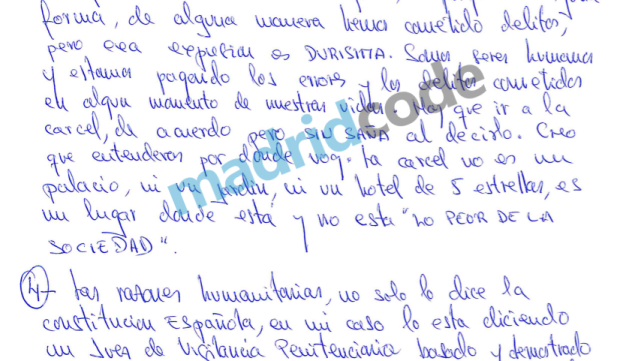 forma, de alguna manera hemos cometido delitos,
pero esa expresion es DURISIMA. Somos seres humanos
y estamos pagando los errores y los delitos cometidos
en algun momento de nuestras vidas. Hay que ir a la
carcel, de acuerdo pero SIN SAÑA al decirlo. Creo
que entenderas por donde voy. La carcel no es un
palacio, ni un jardin, ni un hotel de 5 estrellas, es
un lugar donde esta y no esta "LO PEOR DE LA
SOCIEDAD".
4- Las razones humanitarias, no solo lo dice la
constitucion Española, en mi caso lo esta diciendo
un Juez de Vigilancia Penitenciaria basado y demostrado
madridcode